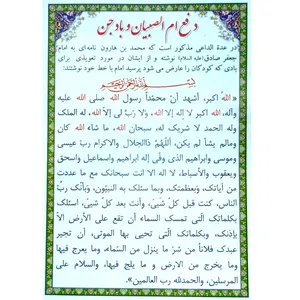 دفع ام الصبیان و باد جن
در عدة الداعی مذکور است که محمد بن هارون نامه‌ای به امام
جعفر صادق (علیه السلام) نوشته و از ایشان در مورد تعویذی برای
بادی که کودکان را عارض می شود پرسید امام با خط خود نوشتند:
بسم الله الرحمن الرحیم
«الله اکبر، أشهد أن محمّداً رسول الله صلی الله علیه
وآله، الله اکبر لا إله إلا الله، ولا ربّ لی إلا الله، له الملک
وله الحمد لا شریک له، سبحان الله، ما شاء الله کان
ومالم یشأ لم یکن، اللّهمّ ذاالجلال والاکرام ربّ عیسی
وموسی وابراهیم الذی وفّی إله ابراهیم واسماعیل واسحق
ویعقوب والأسباط، لا اله الا انت سبحانک مع ما عددت
من آیاتک، وبعظمتک، وبما سئلک به النبیّون، وبأنک ربّ
الناس، کنت قبل کلّ شیئ، وأنت بعد کلّ شیئ، اسئلک
بکلماتک الّتی تمسک السماء أن تقع علی الأرض الاّ
باذنک، وبکلماتک الّتی تحیی بها الموتی، أن تجیر
عبدک فلاناً من شر ما ینزل من السّماء، وما یعرج فیها
وما یخرج من الارض و ما یلج فیها، والسلام علی
المرسلین، والحمدلله رب العالمین».